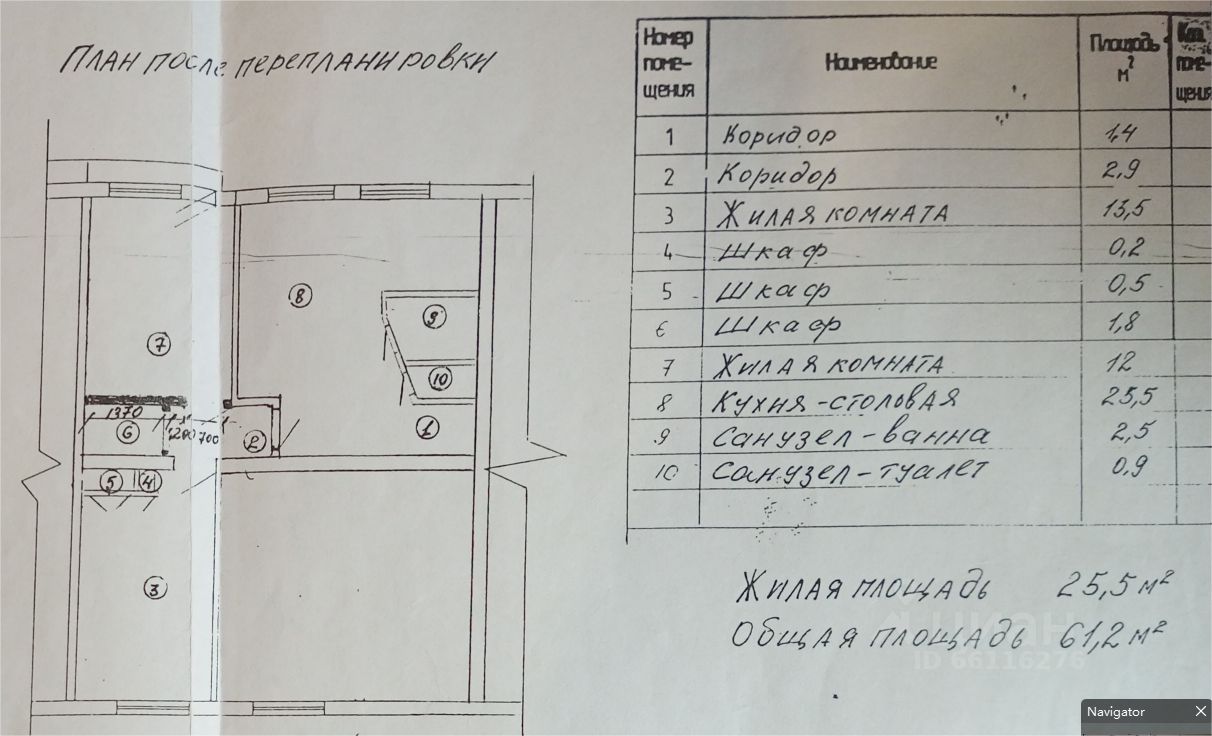 План после перепланировки
Номер поме- щения Наименование Площадь м²
1 Коридор 1,4
2 Коридор 2,9
3 Жилая комната 13,5
4 Шкаф 0,2
5 Шкаф 0,5
6 Шкаф 1,8
7 Жилая комната 12
8 Кухня-столовая 25,5
9 Санузел-ванна 2,5
10 Санузел-туалет 0,9
8
9
7
10
1370
6
1200 700
2
1
5 4
3
Жилая площадь 25,5 м²
Общая площадь 61,2 м²
циан
ID 66116276
Navigator